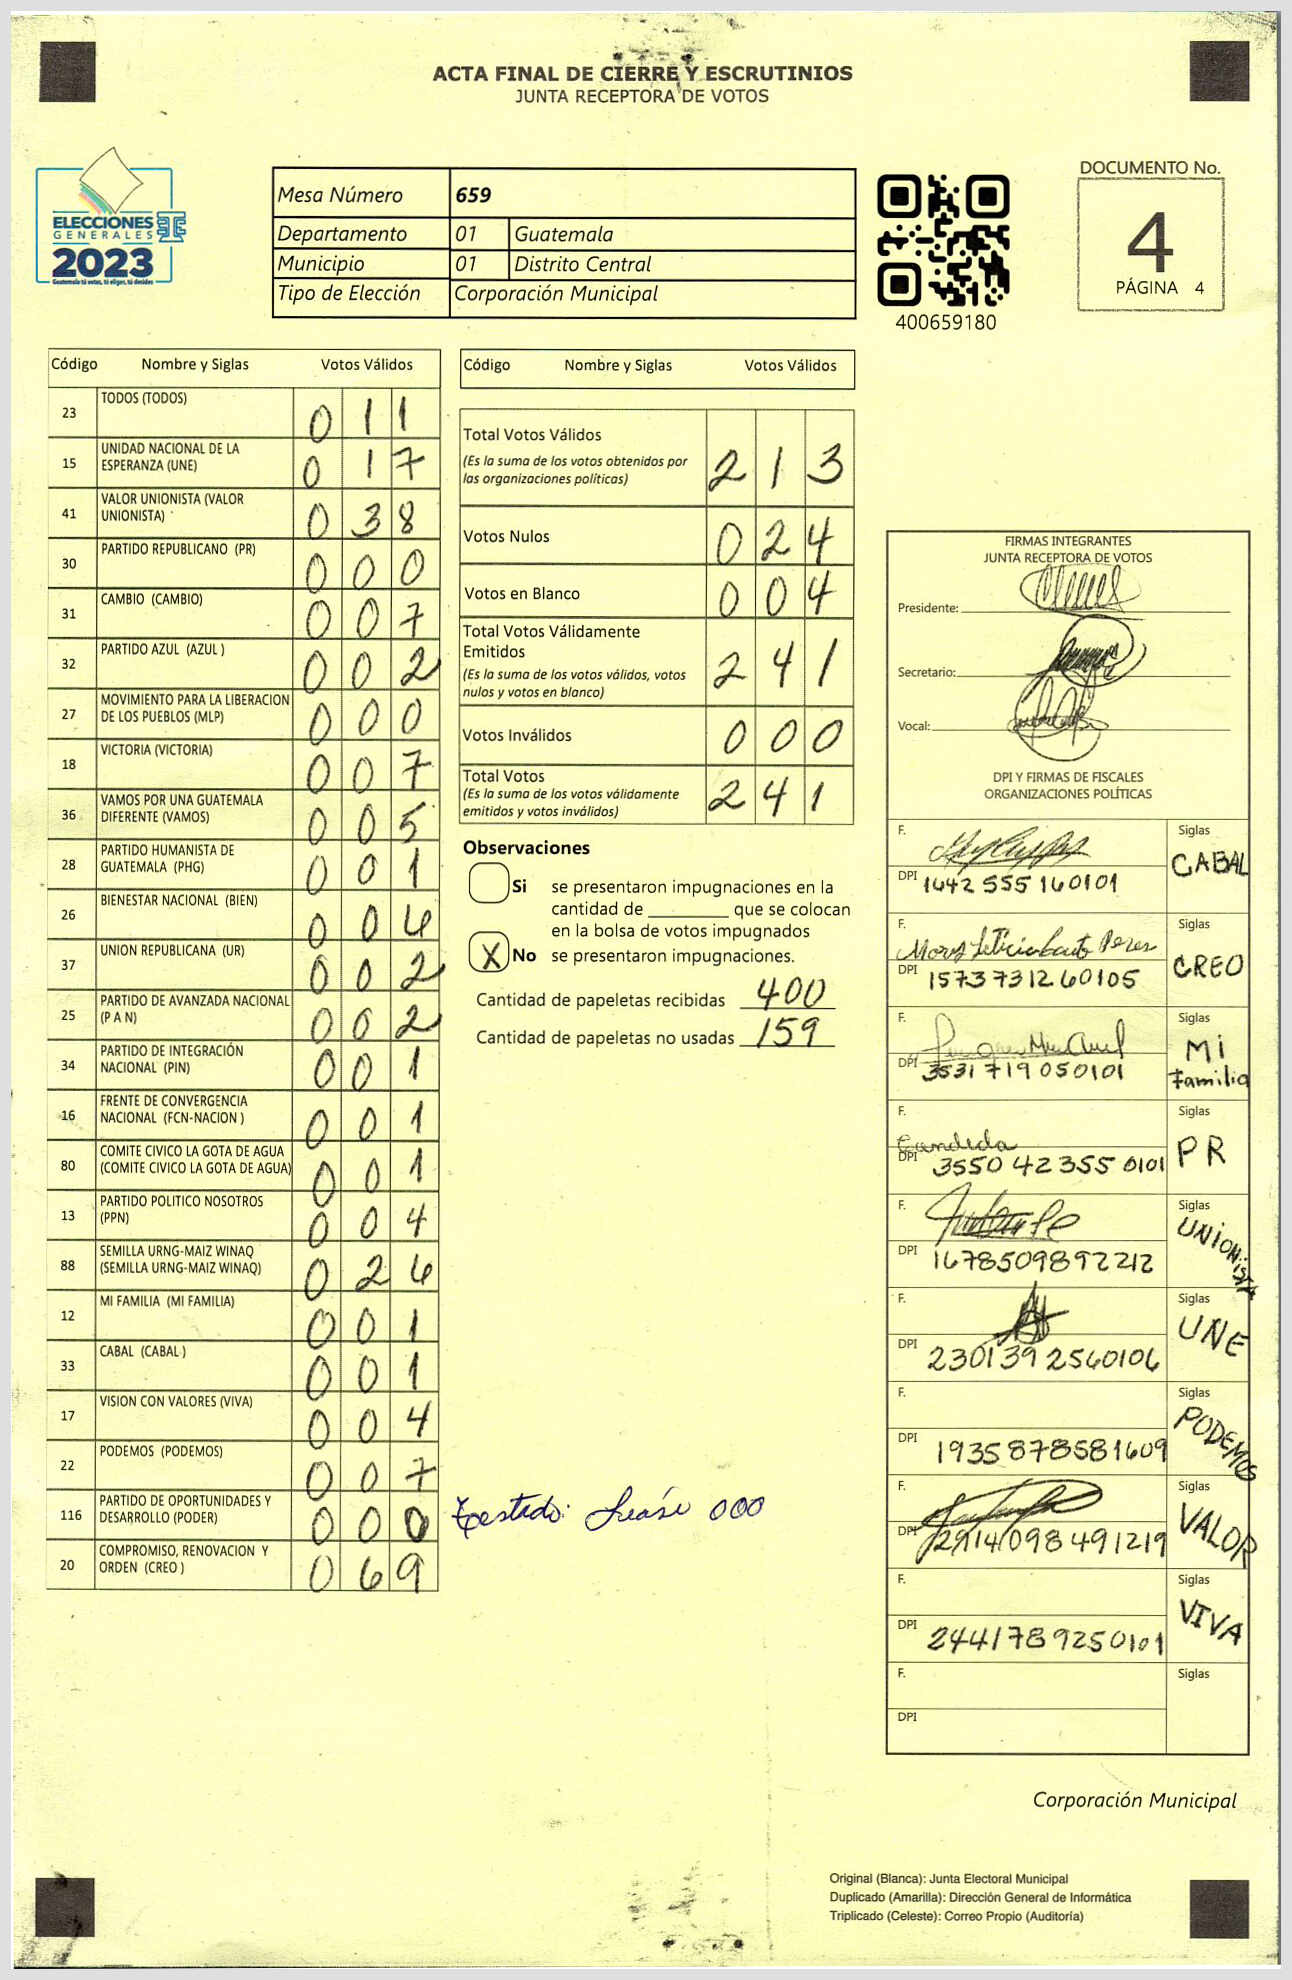 ACTA FINAL DE CIERRE Y ESCRUTINIOS
JUNTA RECEPTORA DE VOTOS
ELECCIONES
GENERALES
2023
Guatemala tú votas, tú eliges, tú decides
Mesa Número 659
Departamento 01 Guatemala
Municipio 01 Distrito Central
Tipo de Elección Corporación Municipal
400659180
DOCUMENTO No.
4
PÁGINA 4
Código Nombre y Siglas Votos Válidos
23 TODOS (TODOS) 0 1 1
15 UNIDAD NACIONAL DE LA ESPERANZA (UNE) 0 1 7
41 VALOR UNIONISTA (VALOR UNIONISTA) 0 3 8
30 PARTIDO REPUBLICANO (PR) 0 0 0
31 CAMBIO (CAMBIO) 0 0 7
32 PARTIDO AZUL (AZUL ) 0 0 2
27 MOVIMIENTO PARA LA LIBERACION DE LOS PUEBLOS (MLP) 0 0 0
18 VICTORIA (VICTORIA) 0 0 7
36 VAMOS POR UNA GUATEMALA DIFERENTE (VAMOS) 0 0 5
28 PARTIDO HUMANISTA DE GUATEMALA (PHG) 0 0 1
26 BIENESTAR NACIONAL (BIEN) 0 0 4
37 UNION REPUBLICANA (UR) 0 0 2
25 PARTIDO DE AVANZADA NACIONAL (P A N) 0 0 2
34 PARTIDO DE INTEGRACIÓN NACIONAL (PIN) 0 0 1
16 FRENTE DE CONVERGENCIA NACIONAL (FCN-NACION ) 0 0 1
80 COMITE CIVICO LA GOTA DE AGUA (COMITE CIVICO LA GOTA DE AGUA) 0 0 1
13 PARTIDO POLITICO NOSOTROS (PPN) 0 0 4
88 SEMILLA URNG-MAIZ WINAQ (SEMILLA URNG-MAIZ WINAQ) 0 2 4
12 MI FAMILIA (MI FAMILIA) 0 0 1
33 CABAL (CABAL ) 0 0 1
17 VISION CON VALORES (VIVA) 0 0 4
22 PODEMOS (PODEMOS) 0 0 7
116 PARTIDO DE OPORTUNIDADES Y DESARROLLO (PODER) 0 0 0 Testado: Léase 000
20 COMPROMISO, RENOVACION Y ORDEN (CREO ) 0 6 9
Código Nombre y Siglas Votos Válidos
Total Votos Válidos 2 1 3
(Es la suma de los votos obtenidos por
las organizaciones políticas)
Votos Nulos 0 2 4
Votos en Blanco 0 0 4
Total Votos Válidamente
Emitidos 2 4 1
(Es la suma de los votos válidos, votos
nulos y votos en blanco)
Votos Inválidos 0 0 0
Total Votos 2 4 1
(Es la suma de los votos válidamente
emitidos y votos inválidos)
Observaciones
Si se presentaron impugnaciones en la
cantidad de ________ que se colocan
en la bolsa de votos impugnados
X No se presentaron impugnaciones.
Cantidad de papeletas recibidas 400
Cantidad de papeletas no usadas 159
FIRMAS INTEGRANTES
JUNTA RECEPTORA DE VOTOS
Presidente:
Secretario:
Vocal:
DPI Y FIRMAS DE FISCALES
ORGANIZACIONES POLÍTICAS
F. Siglas
DPI 1642 555 160101 CABAL
F. Siglas
DPI 1573731260105 CREO
F. Siglas
DPI 3531719050101 Mi Familia
F. Candida Siglas
DPI 3550 42355 0101 PR
F. Siglas
DPI 1678509892212 UNIONISTA
F. Siglas
DPI 2301392560106 UNE
F. Siglas
DPI 1935878581609 PODEMOS
F. Siglas
DPI 2914098491219 VALOR
F. Siglas
DPI 2441789250101 VIVA
F. Siglas
DPI
Corporación Municipal
Original (Blanca): Junta Electoral Municipal
Duplicado (Amarilla): Dirección General de Informática
Triplicado (Celeste): Correo Propio (Auditoría)